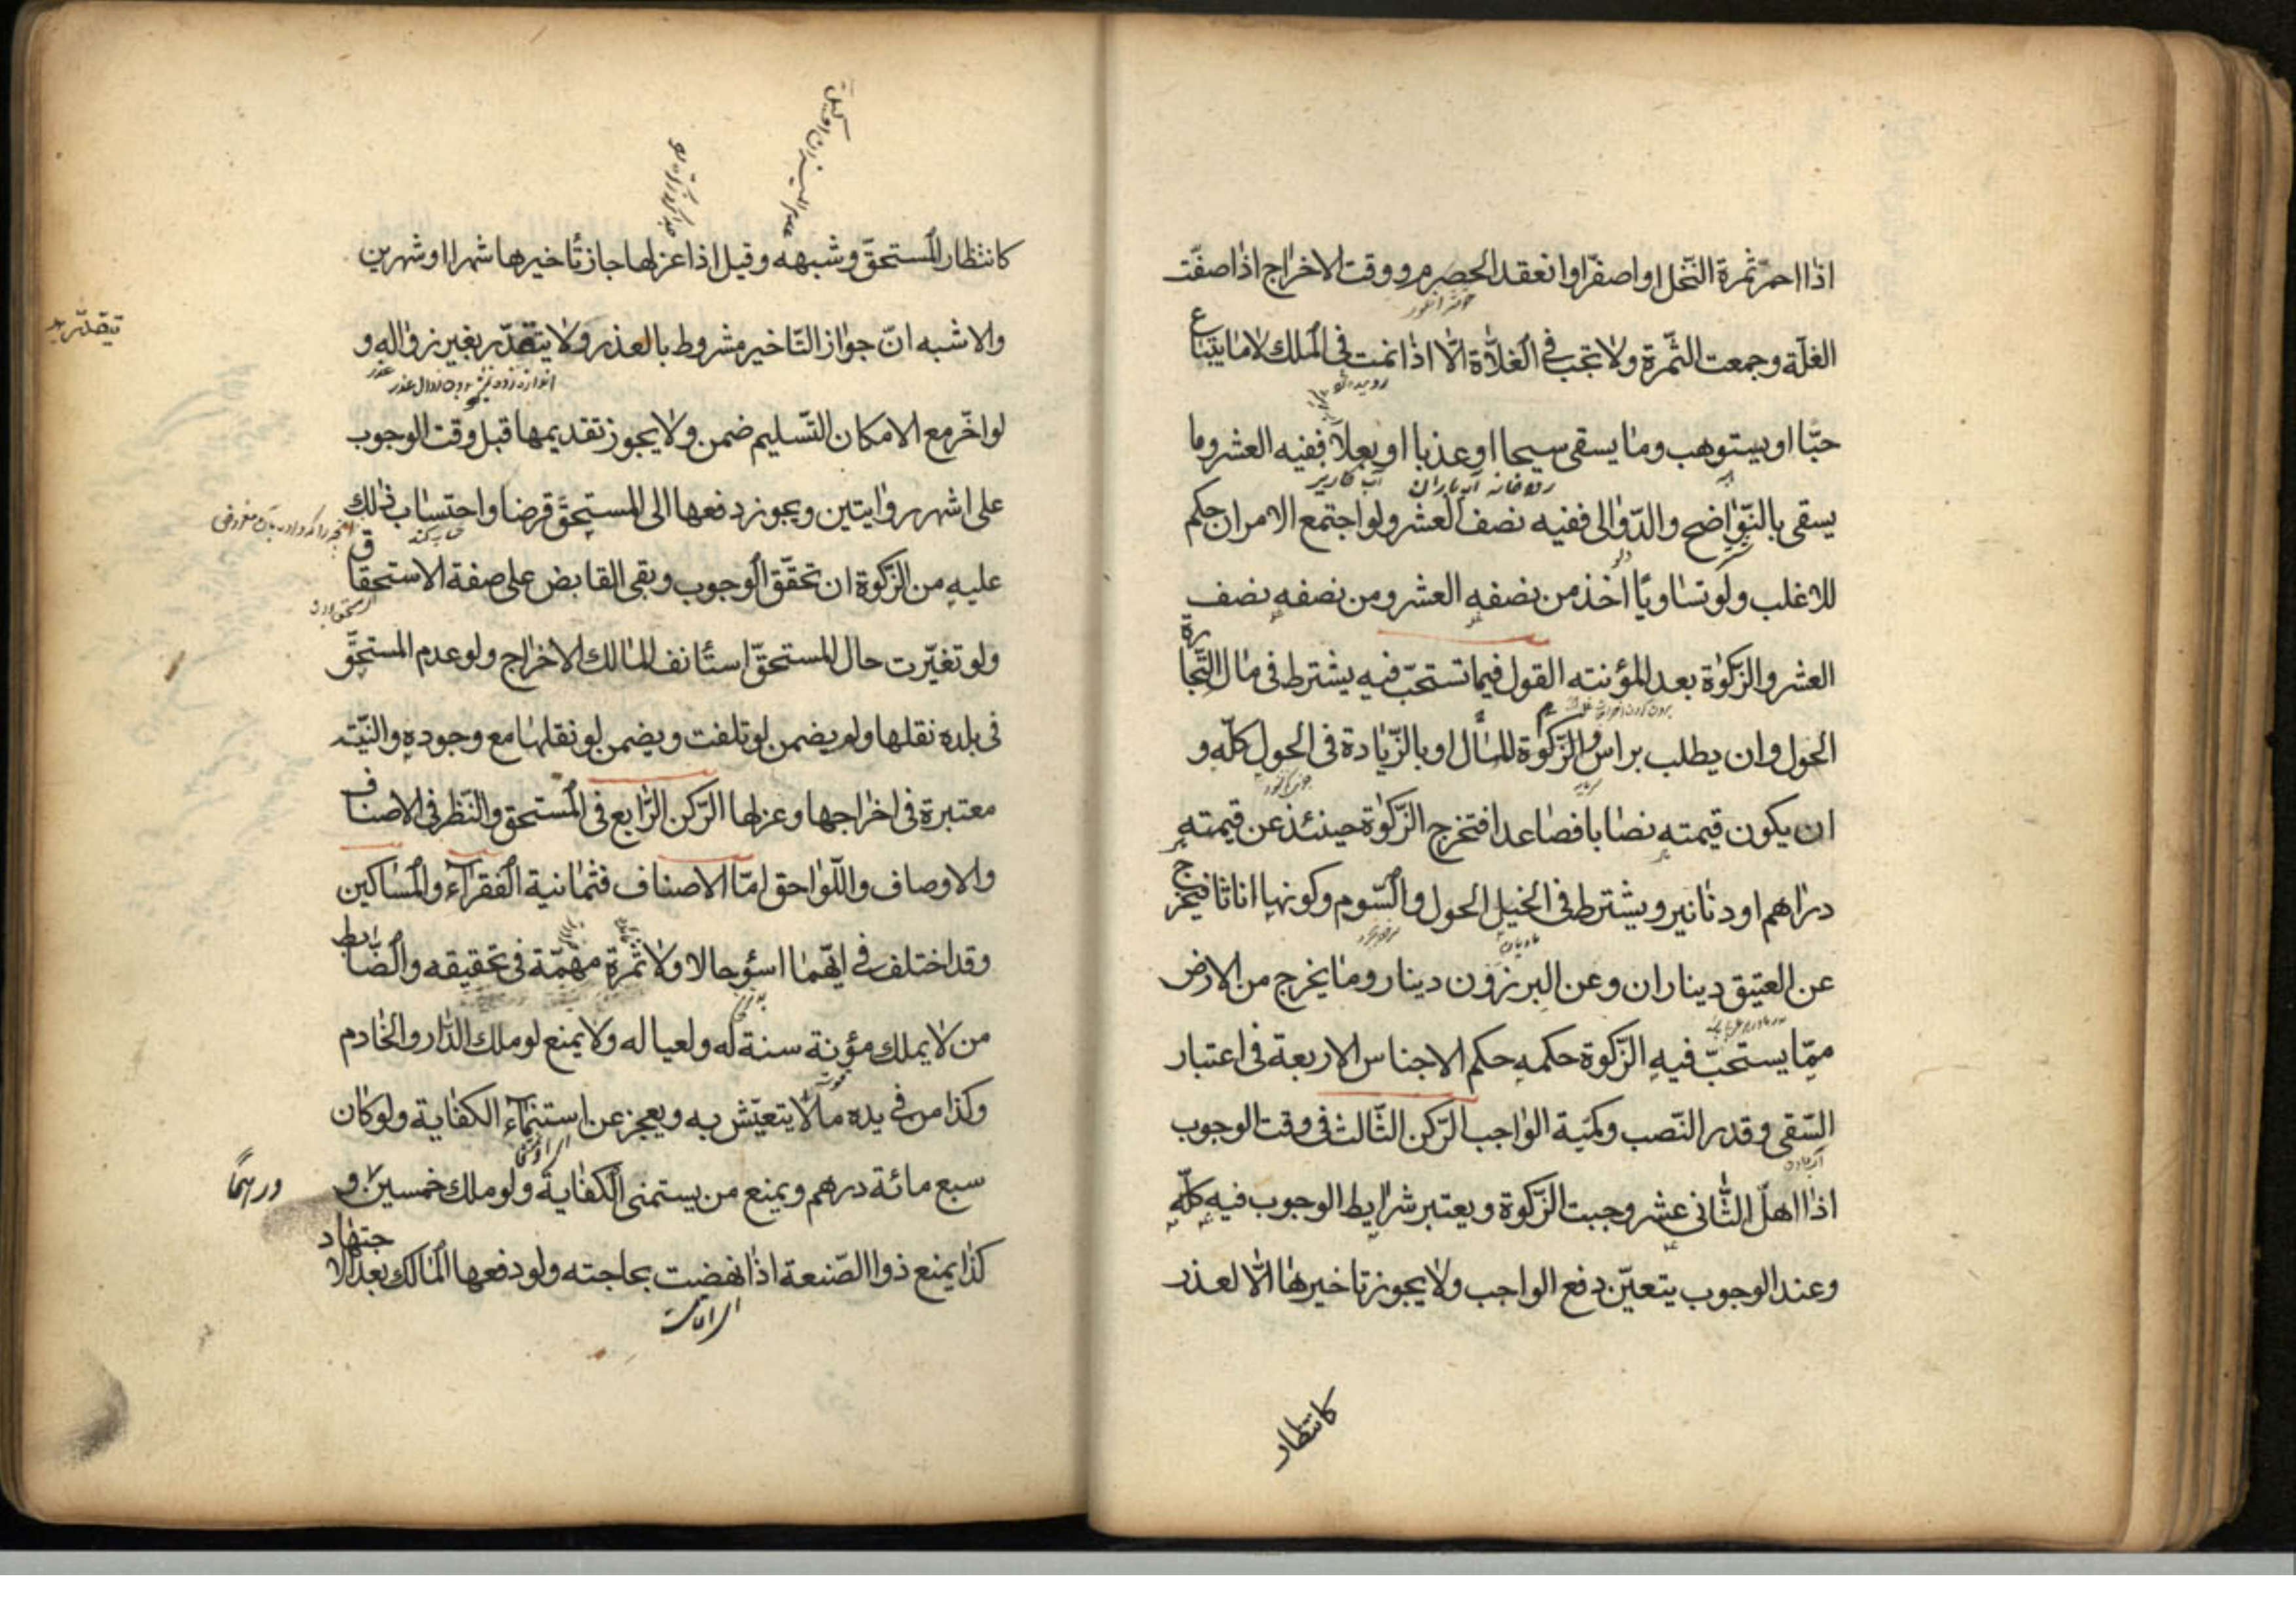 اذا احمرّ ثمرة النّخل او اصفرّ او انعقد الحصرم و وقت الاخراج اذا صفّت
الغلّة وجمعت الثّمرة ولا تجب فی الغلاّة الاّ اذا نمت فی الملک لا ما یبتاع
حبّا او یستوهب وما یسقی سیحا او عذبا او بعلا ففیه العشر وما
رودخانه آب باران آب کاریز
یسقی بالنّواضح والدّوالی ففیه نصف العشر ولو اجتمع الامران حکم
للاغلب ولو تساویا اخذ من نصفه العشر ومن نصفه نصف
العشر والزّکوة بعد المؤنته القول فیما تستحبّ فیه یشترط فی مال التّجارة
الحول وان یطلب براس المال او بالزّیادة فی الحول کلّه و
ان یکون قیمته نصابا فصاعدا فتخرج الزّکوة حینئذ عن قیمته
دراهم او دنانیر ویشترط فی الخیل الحول والسّوم وکونها اناثا فیخرج
مادیان
عن العتیق دیناران وعن البرزون دینار وما یخرج من الارض
ممّا یستحبّ فیه الزّکوة حکمه حکم الاجناس الاربعة فی اعتبار
السّقی وقدر النّصب وکمّیة الواجب الرّکن الثّالث فی وقت الوجوب
اذا اهلّ الثّانی عشر وجبت الزّکوة ویعتبر شرایط الوجوب فیه کلّه
وعند الوجوب یتعیّن دفع الواجب ولا یجوز تاخیرها الاّ لعذر
کانتظار
کانتظار المستحقّ وشبهه وقیل اذا عزلها جاز تأخیرها شهرا او شهرین
والاشبه انّ جواز التّاخیر مشروط بالعذر ولا یتقدّر بغیر زواله و
بدون زوال عذر
لو اخّر مع الامکان التّسلیم ضمن ولا یجوز تقدیمها قبل وقت الوجوب
علی اشهر روایتین ویجوز دفعها الی المستحقّ قرضا واحتساب ذلک
حساب کند
علیه من الزّکوة ان تحقّق الوجوب وبقی القابض علی صفة الاستحقاق
ولو تغیّرت حال المستحقّ استأنف المالک الاخراج ولو عدم المستحقّ
فی بلده نقلها ولم یضمن لو تلفت ویضمن لو نقلها مع وجوده والنّیّته
معتبرة فی اخراجها وعزلها الرّکن الرّابع فی المستحق والنّظر فی الاصناف
والاوصاف واللّواحق امّا الاصناف فثمانیة الفقرآء والمساکین
وقد اختلف فی ایّهما اسؤ حالا ولا ثمرة مهمّة فی تحقیقه والضّابط
من لا یملک مؤنة سنة له ولعیاله ولا یمنع لو ملک الدّار والخادم
وکذا من فی یده ما لا یتعیّش به ویعجز عن استنمآء الکفایة ولو کان
سبع مائة درهم ویمنع من یستمنی الکفایة ولو ملک خمسین و
درهمًا
کذا یمنع ذوا الصّنعة اذا نهضت بحاجته ولو دفعها المالک بعد الاجتهاد